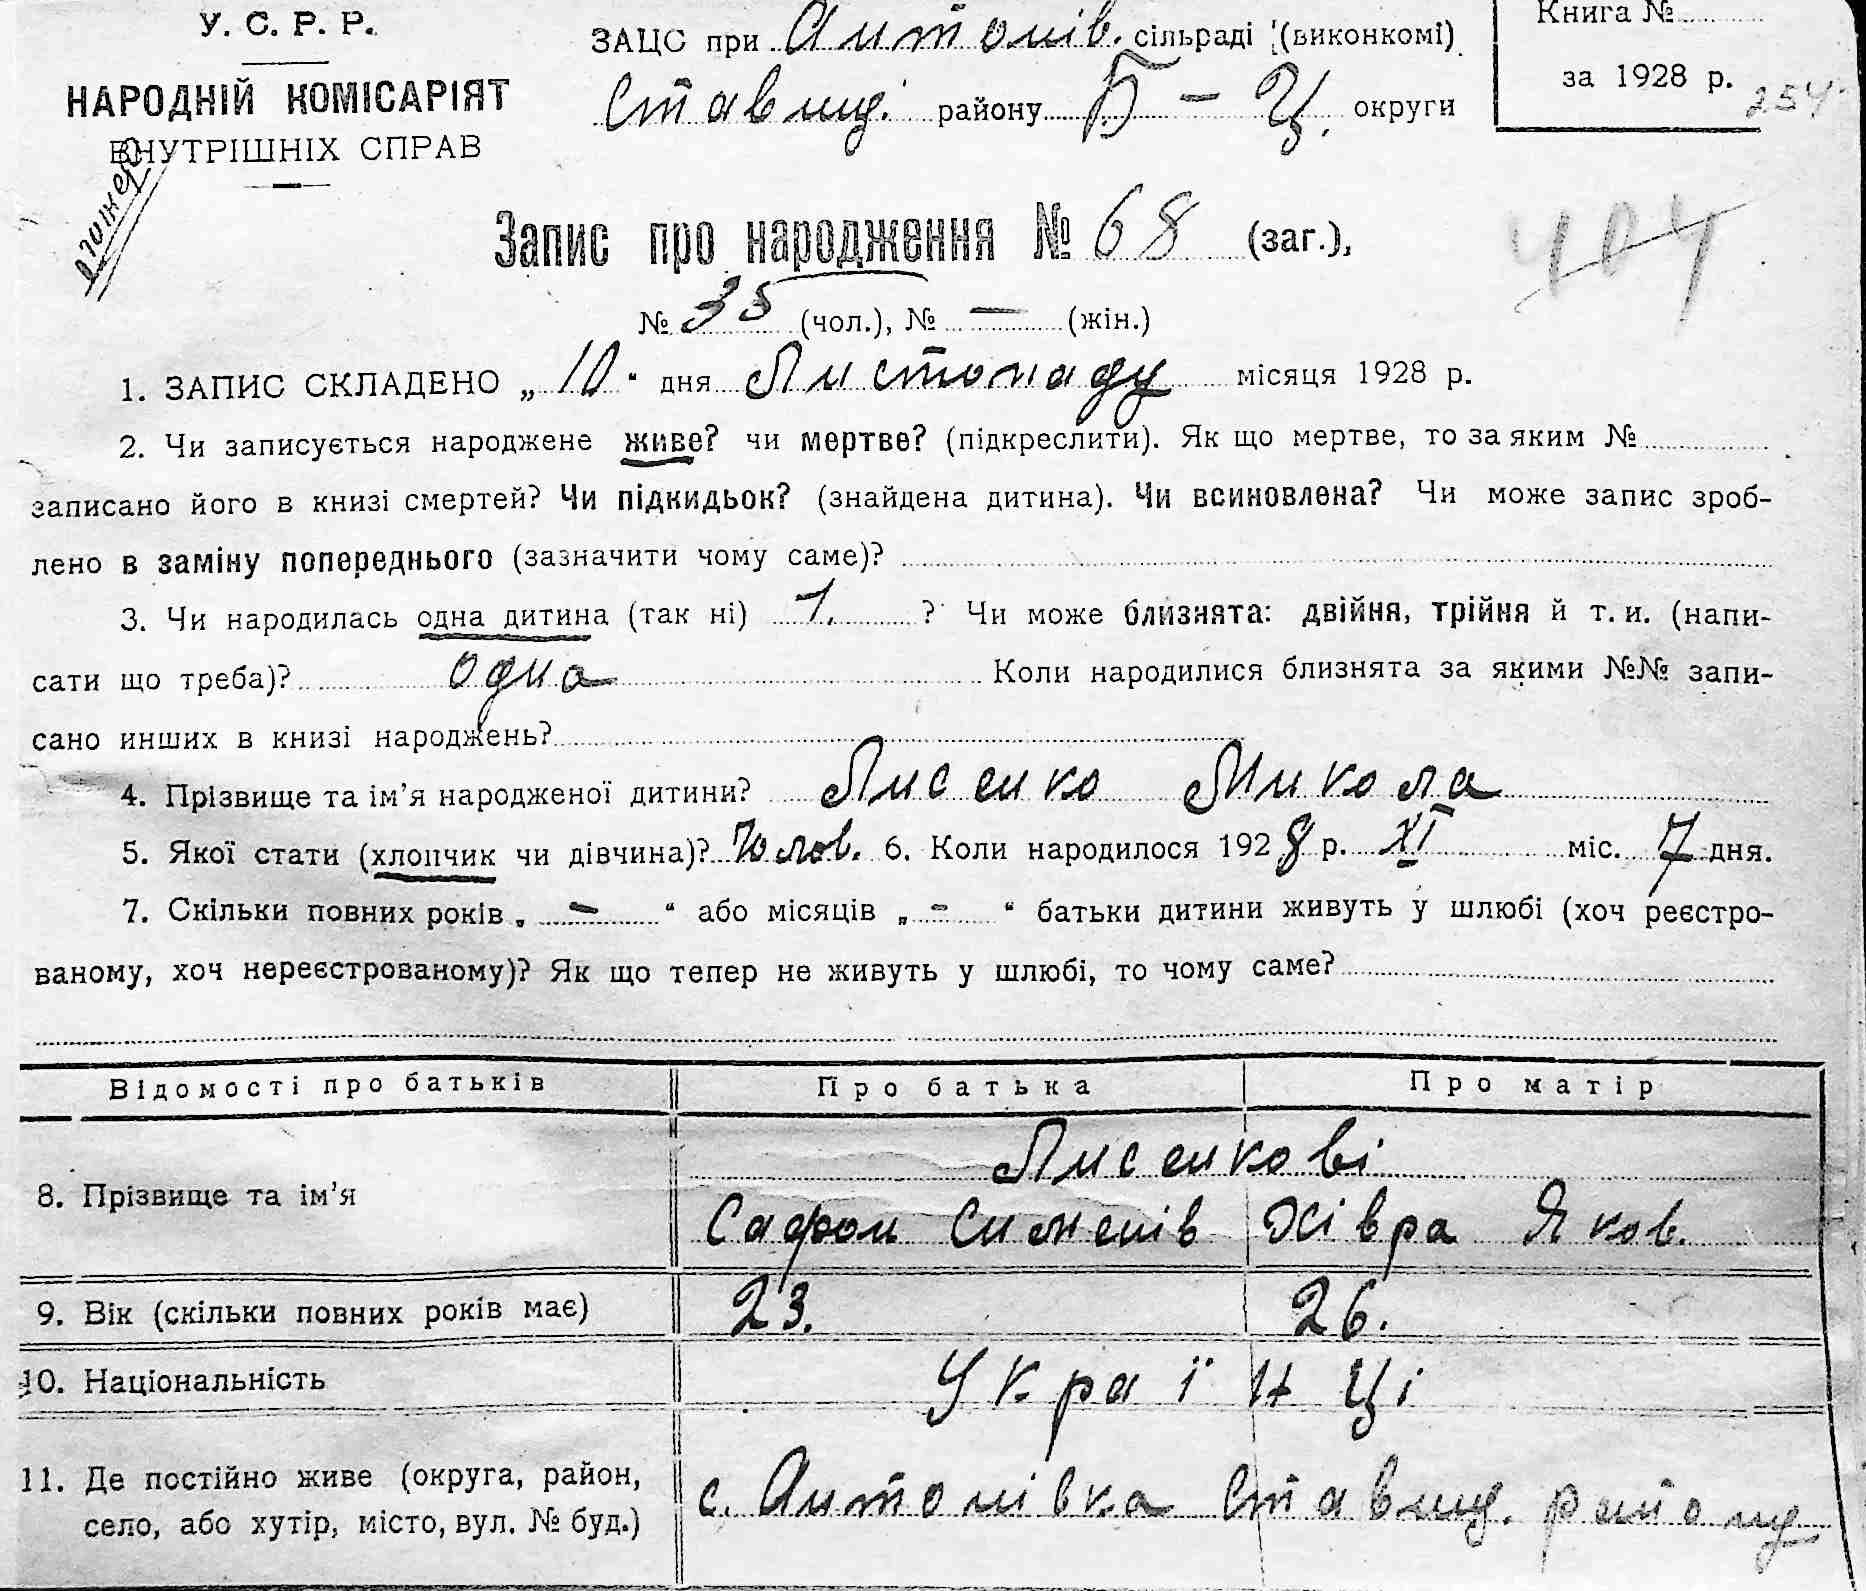 У. С. Р. Р.
НАРОДНІЙ КОМІСАРІЯТ
ВНУТРІШНІХ СПРАВ
ЗАЦС при Антонів. сільраді (виконкомі)
Ставищ. району Б – Ц. округи
Книга №
за 1928 р.
254
404
Запис про народження № 68 (заг.),
№ 35 (чол.), № — (жін.)
1. ЗАПИС СКЛАДЕНО „ 10 “ дня Листопаду місяця 1928 р.
2. Чи записується народжене живе? чи мертве? (підкреслити). Як що мертве, то за яким №
записано його в книзі смертей? Чи підкидьок? (знайдена дитина). Чи всиновлена? Чи може запис зроб-
лено в заміну попереднього (зазначити чому саме)?
3. Чи народилась одна дитина (так ні) 1. ? Чи може близнята: двійня, трійня й т. и. (напи-
сати що треба)? одна Коли народилися близнята за якими №№ запи-
сано инших в книзі народжень?
4. Прізвище та ім’я народженої дитини? Лисенко Микола
5. Якої стати (хлопчик чи дівчина)? Чолов. 6. Коли народилося 1928 р. XI міс. 7 дня.
7. Скільки повних років „ – “ або місяців „ – “ батьки дитини живуть у шлюбі (хоч реєстро-
ваному, хоч нереєстрованому)? Як що тепер не живуть у шлюбі, то чому саме?
Відомості про батьків Про батька Про матір
Лисенкові
8. Прізвище та ім’я Сафон Сименів Хівра Яков.
9. Вік (скільки повних років має) 23. 26.
10. Національність Українці
11. Де постійно живе (округа, район,
село, або хутір, місто, вул. № буд.) с. Антонівка Ставищ. району